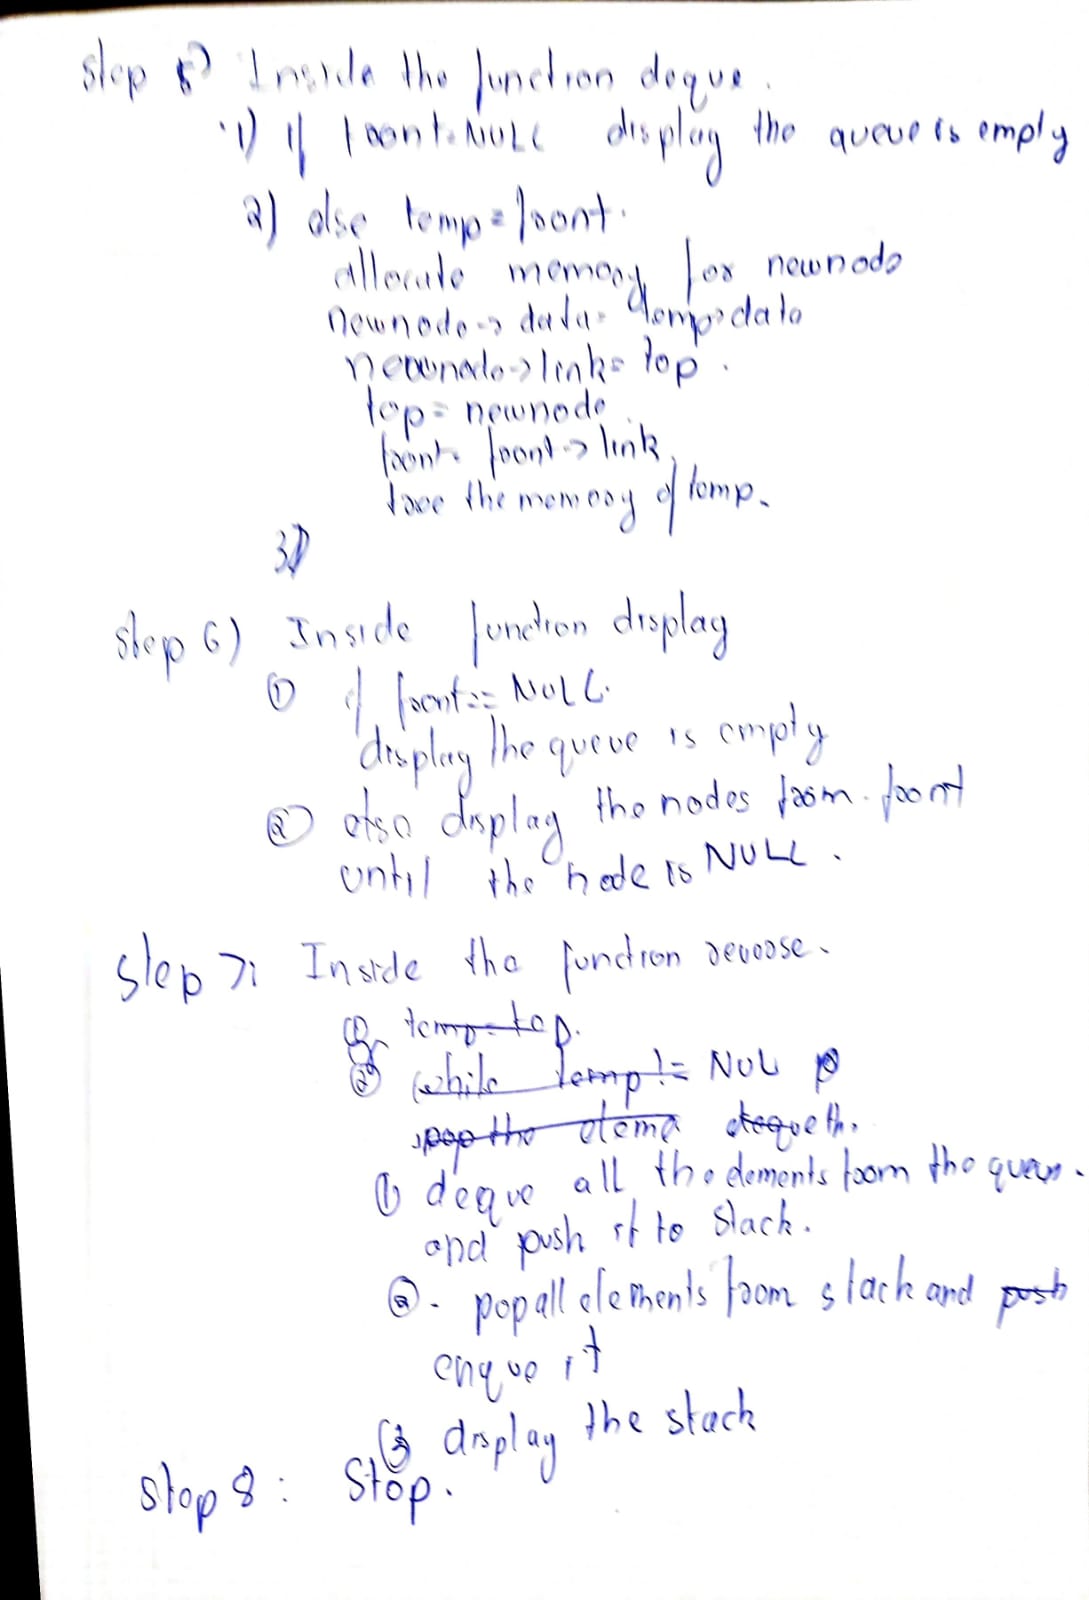 Step 5) Inside the function deque.
1) if front=NULL display the queue is empty
2) else temp=front.
allocate memory for newnode
newnode->data=temp->data
newnode->link=top.
top=newnode
front=front->link
free the memory of temp.
3)
Step 6) Inside function display
① if front==NULL.
display the queue is empty
② else display the nodes from front
until the node is NULL.
Step 7: Inside the function reverse.
① temp=top.
② while temp!= NUL
pop the elema deque th.
① deque all the elements from the queue.
and push it to stack.
②- pop all elements from stack and push
enque it
③ display the stack
Step 8: Stop.